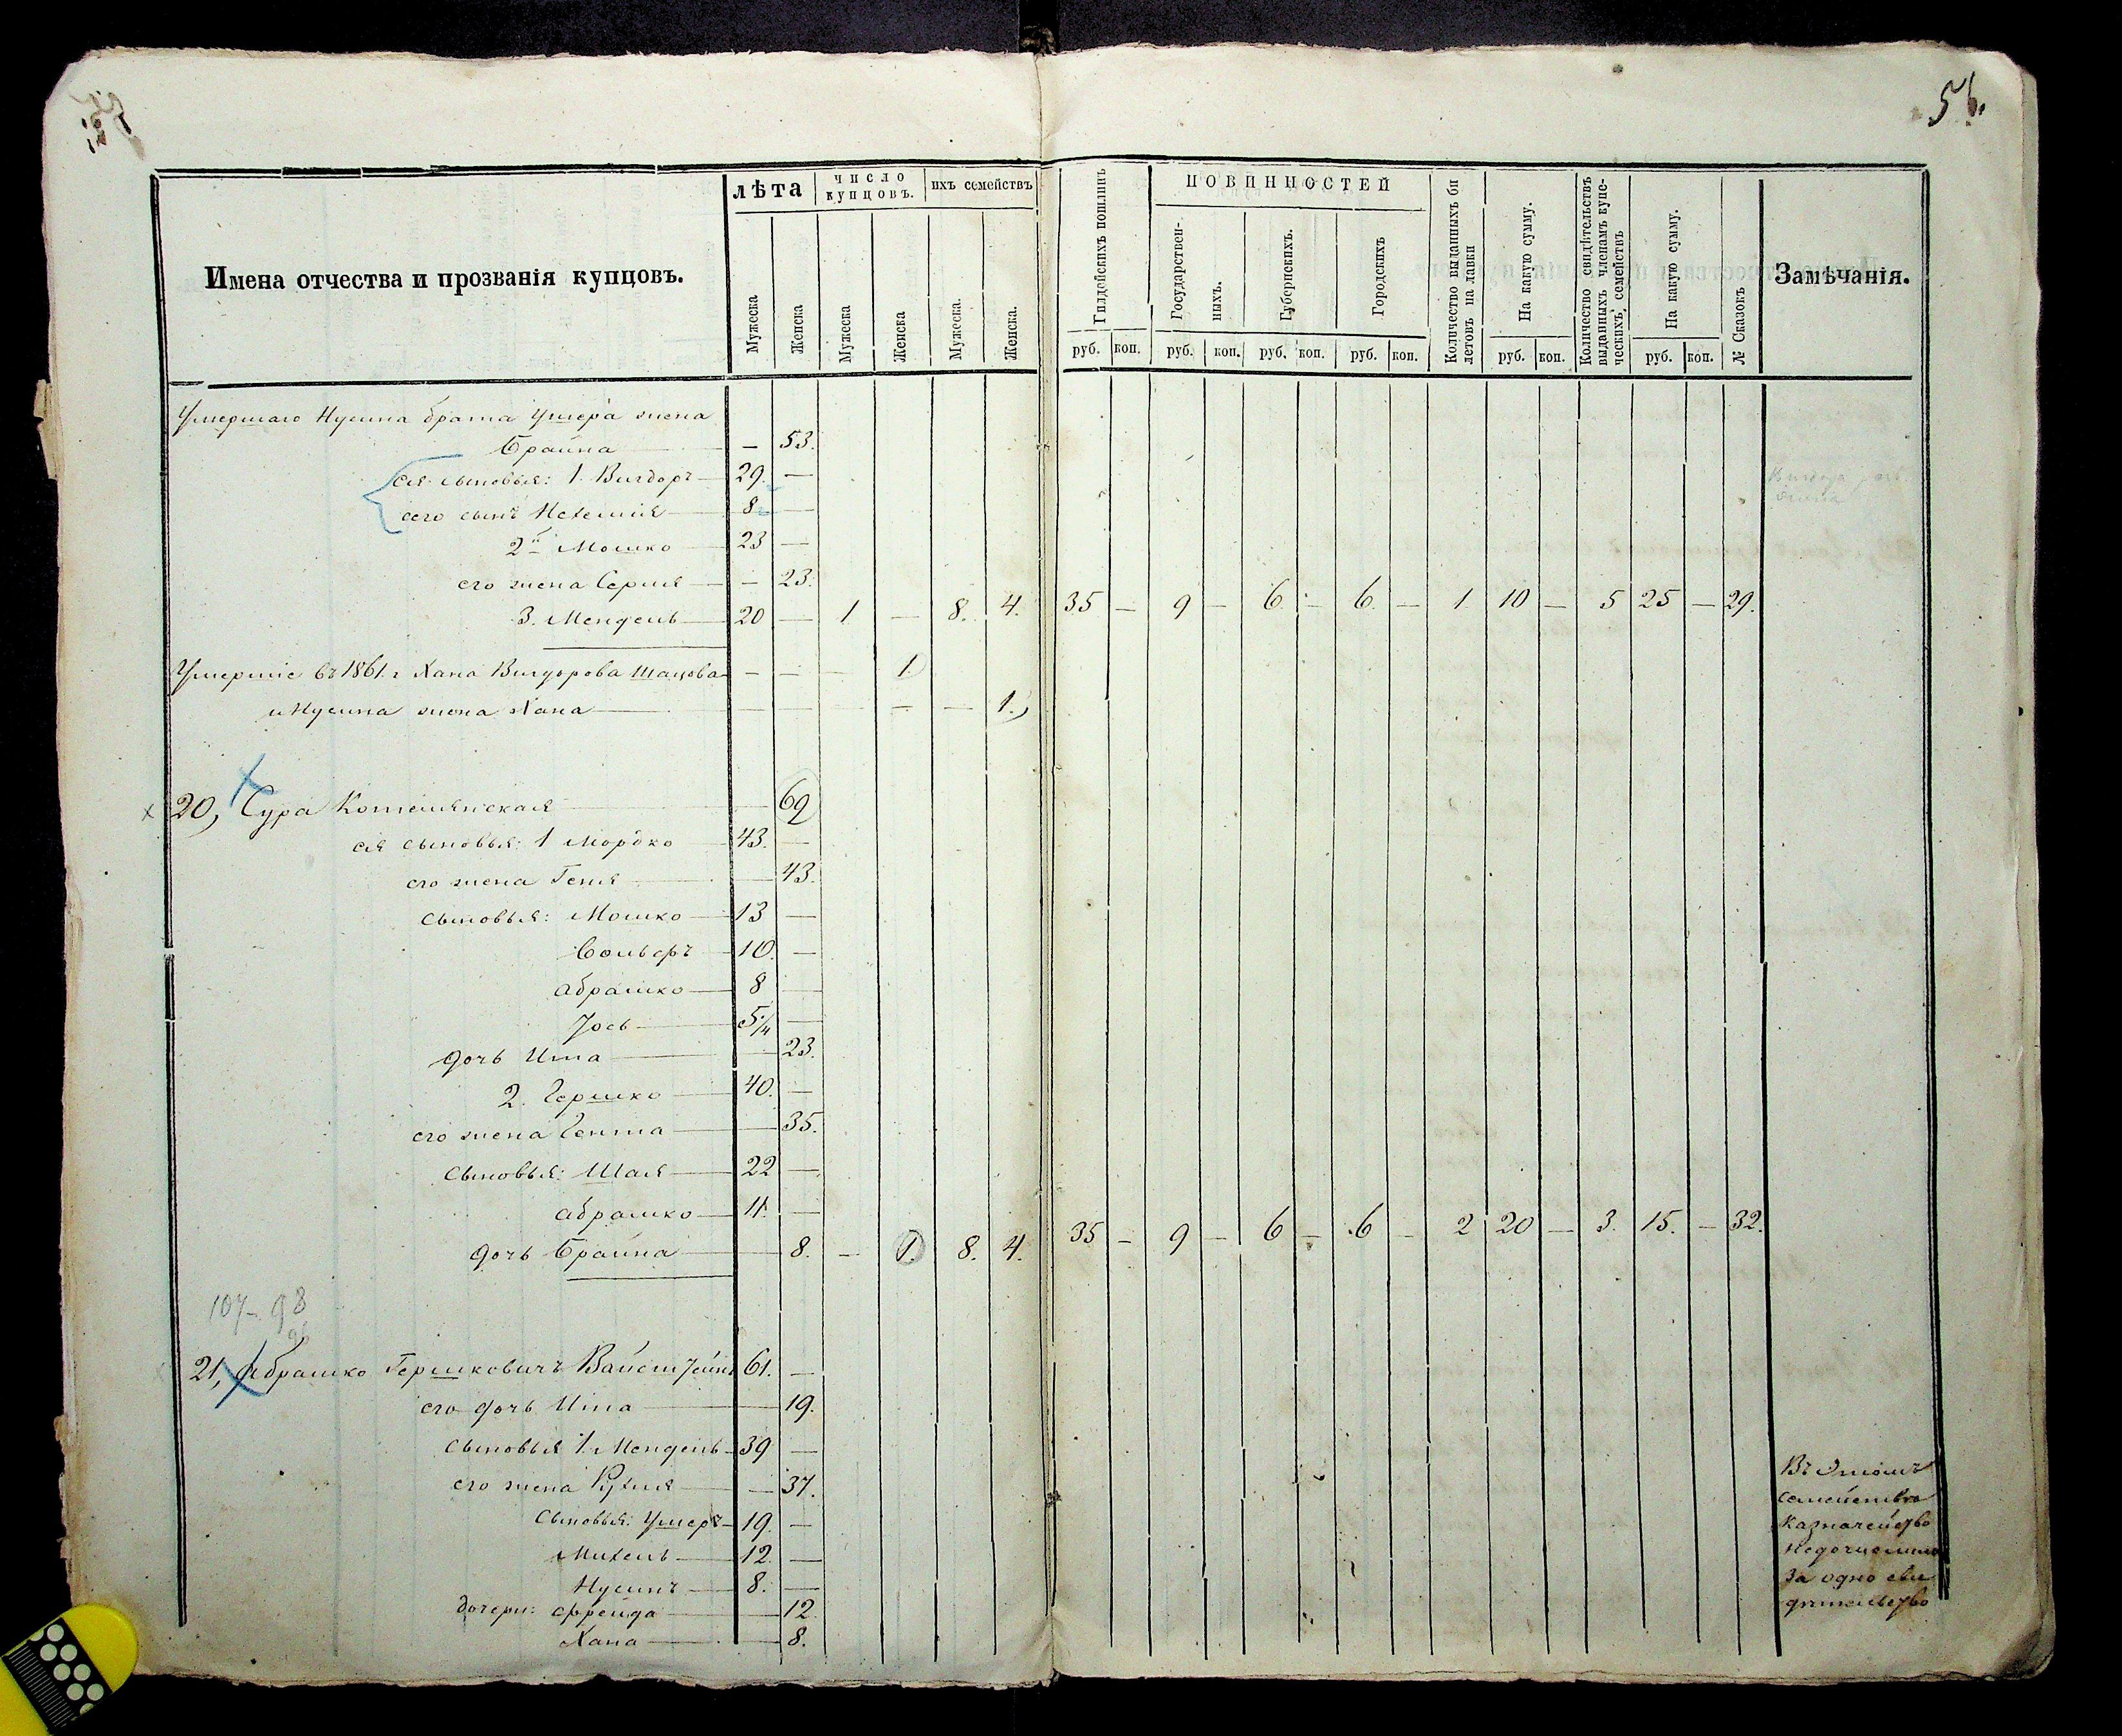 56.
Имена отчества и прозванія купцовъ.
лѣта
число купцовъ.
ихъ семействъ
Мужеска
Женска
Мужеска
Женска
Мужеска.
Женска.
Гилдейскихъ пошлинъ
ПОВИННОСТЕЙ
Государствен-
ныхъ.
Губернскихъ.
Городскихъ
Количество выданныхъ би
летовъ на лавки
На какую сумму.
Количество свидѣтельствъ
выданныхъ членамъ купе-
ческихъ семействъ
На какую сумму.
№ Сказокъ
Замѣчанія.
руб. коп. руб. коп. руб. коп. руб. коп. руб. коп. руб. коп.
Умершаго Нусина брата Ушера жена
Брайна — 53.
ея сыновья: 1. Вигдоръ 29. —
его сынъ Нехемія 8 —
2й Мошко 23 —
его жена Серля — 23.
3. Мендель 20 — 1 — 8. 4. 35 — 9 — 6. — 6. — 1 10 — 5 25 — 29.
Умершіе въ 1861 г Хана Вигдорова Шацова — — — 1
и Нусина жена Хана — — — — — 1.
20, Сура Котлянская — 69
ея сыновья: 1 Мордко 43. —
его жена Геня — 43.
сыновья: Мошко 13 —
10. —
Абрашко 8 —
Іось 5/4 —
дочь Ита — 23.
2. Гершко 40. —
его жена Гентa — 35.
сыновья: Шая 22 —
Абрашко 11. —
дочь Брайна — 8. — 1. 8. 4. 35 — 9 — 6 — 6 — 2 20 — 3. 15. — 32.
107-98
21, Абрашко Гершковичъ Вайсштейнъ 61. —
его дочь Ита — 19.
сыновья 1. Мендель 39 —
его жена Рухля — 37.
сыновья: Ушеръ 19. —
Михель 12 —
Нусинъ 8. —
дочери: Фрейда — 12
Хана — 8.
Въ этомъ
семействѣ
казначейство
недочислило
за одно сви
дѣтельство